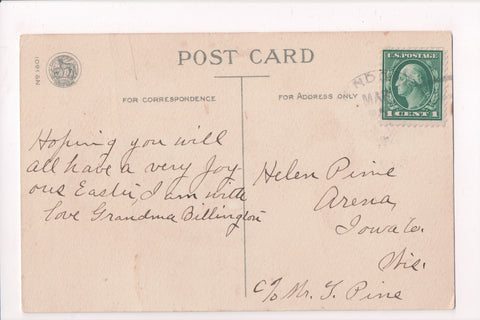 POST CARD
FOR CORRESPONDENCE
FOR ADDRESS ONLY
U.S. POSTAGE
1 CENT 1
MAR
Hoping you will
all have a very Joy-
ous Easter, I am with
love Grandma Billington
Helen Pine
Arena,
Iowa Co.
Wis.
c/o Mr. T. Pine